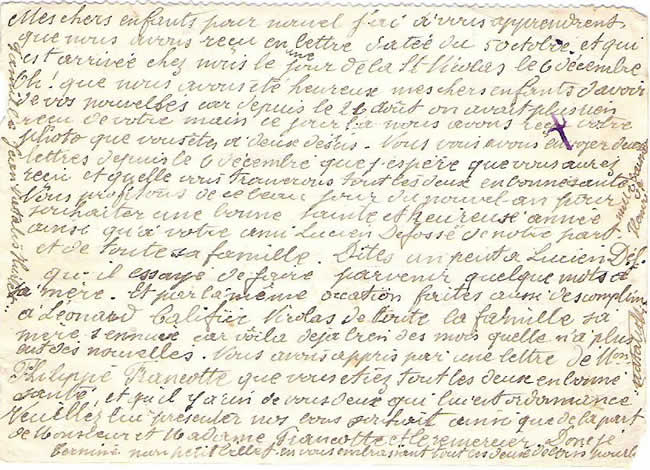 Mes chers enfants pour nouvel j'ai à vous apprendrent
que nous avons reçu en lettre datée du 5 octobre et qui
est arrivée chez nous le même jour de la St Nicolas le 6 décembre
Oh! que nous avons été heureux mes chers enfants d'avoir
de vos nouvelles car depuis le 26 août on avait plus rien
reçu de votre main ce jour là nous avons reçu votre
photo que vous êtes à deux dessus. Nous vous avons envoyer deux
lettres depuis le 6 décembre que j'espère que vous aurez
reçu et quelle vous trouverons tout les deux en bonne santé
Nous profitons de ce beau jour du nouvel an pour
souhaiter une bonne sainte et heureuse année
ainsi qu'à votre ami Lucien Defossé de notre part
et de toute sa famille. Dites un peu à Lucien Def.
qu'il essaye de faire parvenir quelque mots à
sa mère. Et par la même ocation faites aussi des complim
a Léonard Nicolas de toute la famille sa
mère s'ennuie car voila déja bien des mois quelle n'a plus
eut des nouvelles. Nous avons appris par une lettre de
Philippe Francotte que vous étiez tout les deux en bonne
santé, et qu'il y a un de vous deux qui lui est ordonnance
veuillez lui présenter nos ainsi que de la part
de Monsieur et Madame Francotte et Donc je
termine mon petit billet en vous embrassant tout les deux de loin pour